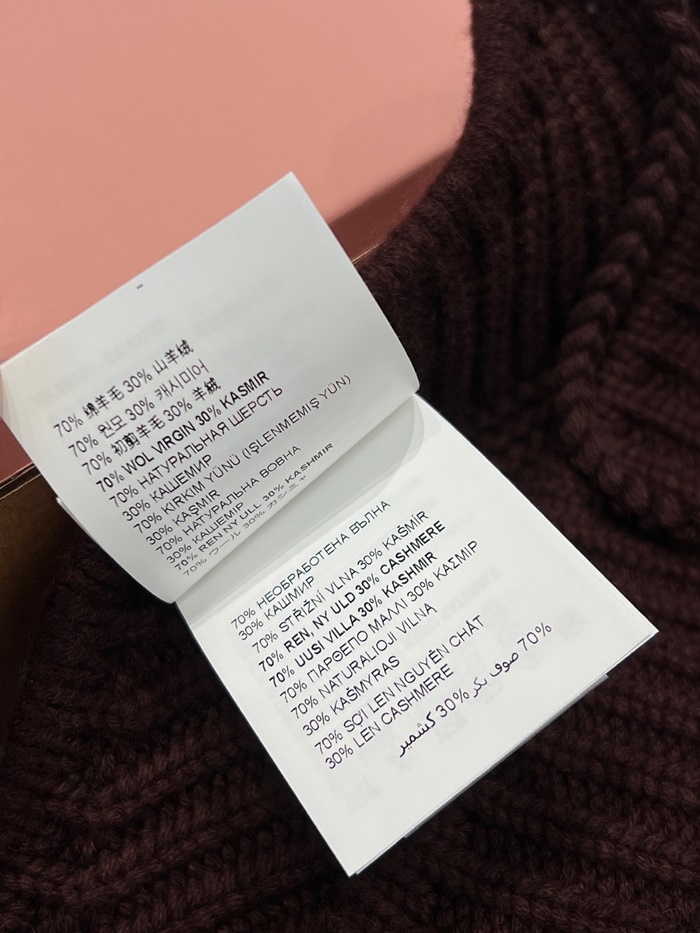 70% 绵羊毛 30% 山羊绒
70% 원모 30% 캐시미어
70% 初剪羊毛 30% 羊絨
70% WOL VIRGIN 30% KASMIR
70% НАТУРАЛЬНАЯ ШЕРСТЬ
30% КАШЕМИР
70% KIRKIM YÜNÜ (IŞLENMEMIŞ YÜN)
30% KAŞMIR
70% НАТУРАЛЬНА ВОВНА
30% КАШЕМІР
70% REN NY ULL 30% KASHMIR
70% ウール 30% カシミヤ
70% НЕОБРАБОТЕНА ВЪЛНА
30% КАШМИР
70% STŘIŽNÍ VLNA 30% KAŠMÍR
70% REN, NY ULD 30% CASHMERE
70% UUSI VILLA 30% KASHMIR
70% ΠΑΡΘΕΠΟ ΜΑΛΛΙ 30% ΚΑΣΜΙΡ
70% NATURALIOJI VILNĄ
30% KAŠMYRAS
70% SỢI LEN NGUYÊN CHẤT
30% LEN CASHMERE
70% صوف بكر 30% كشمير